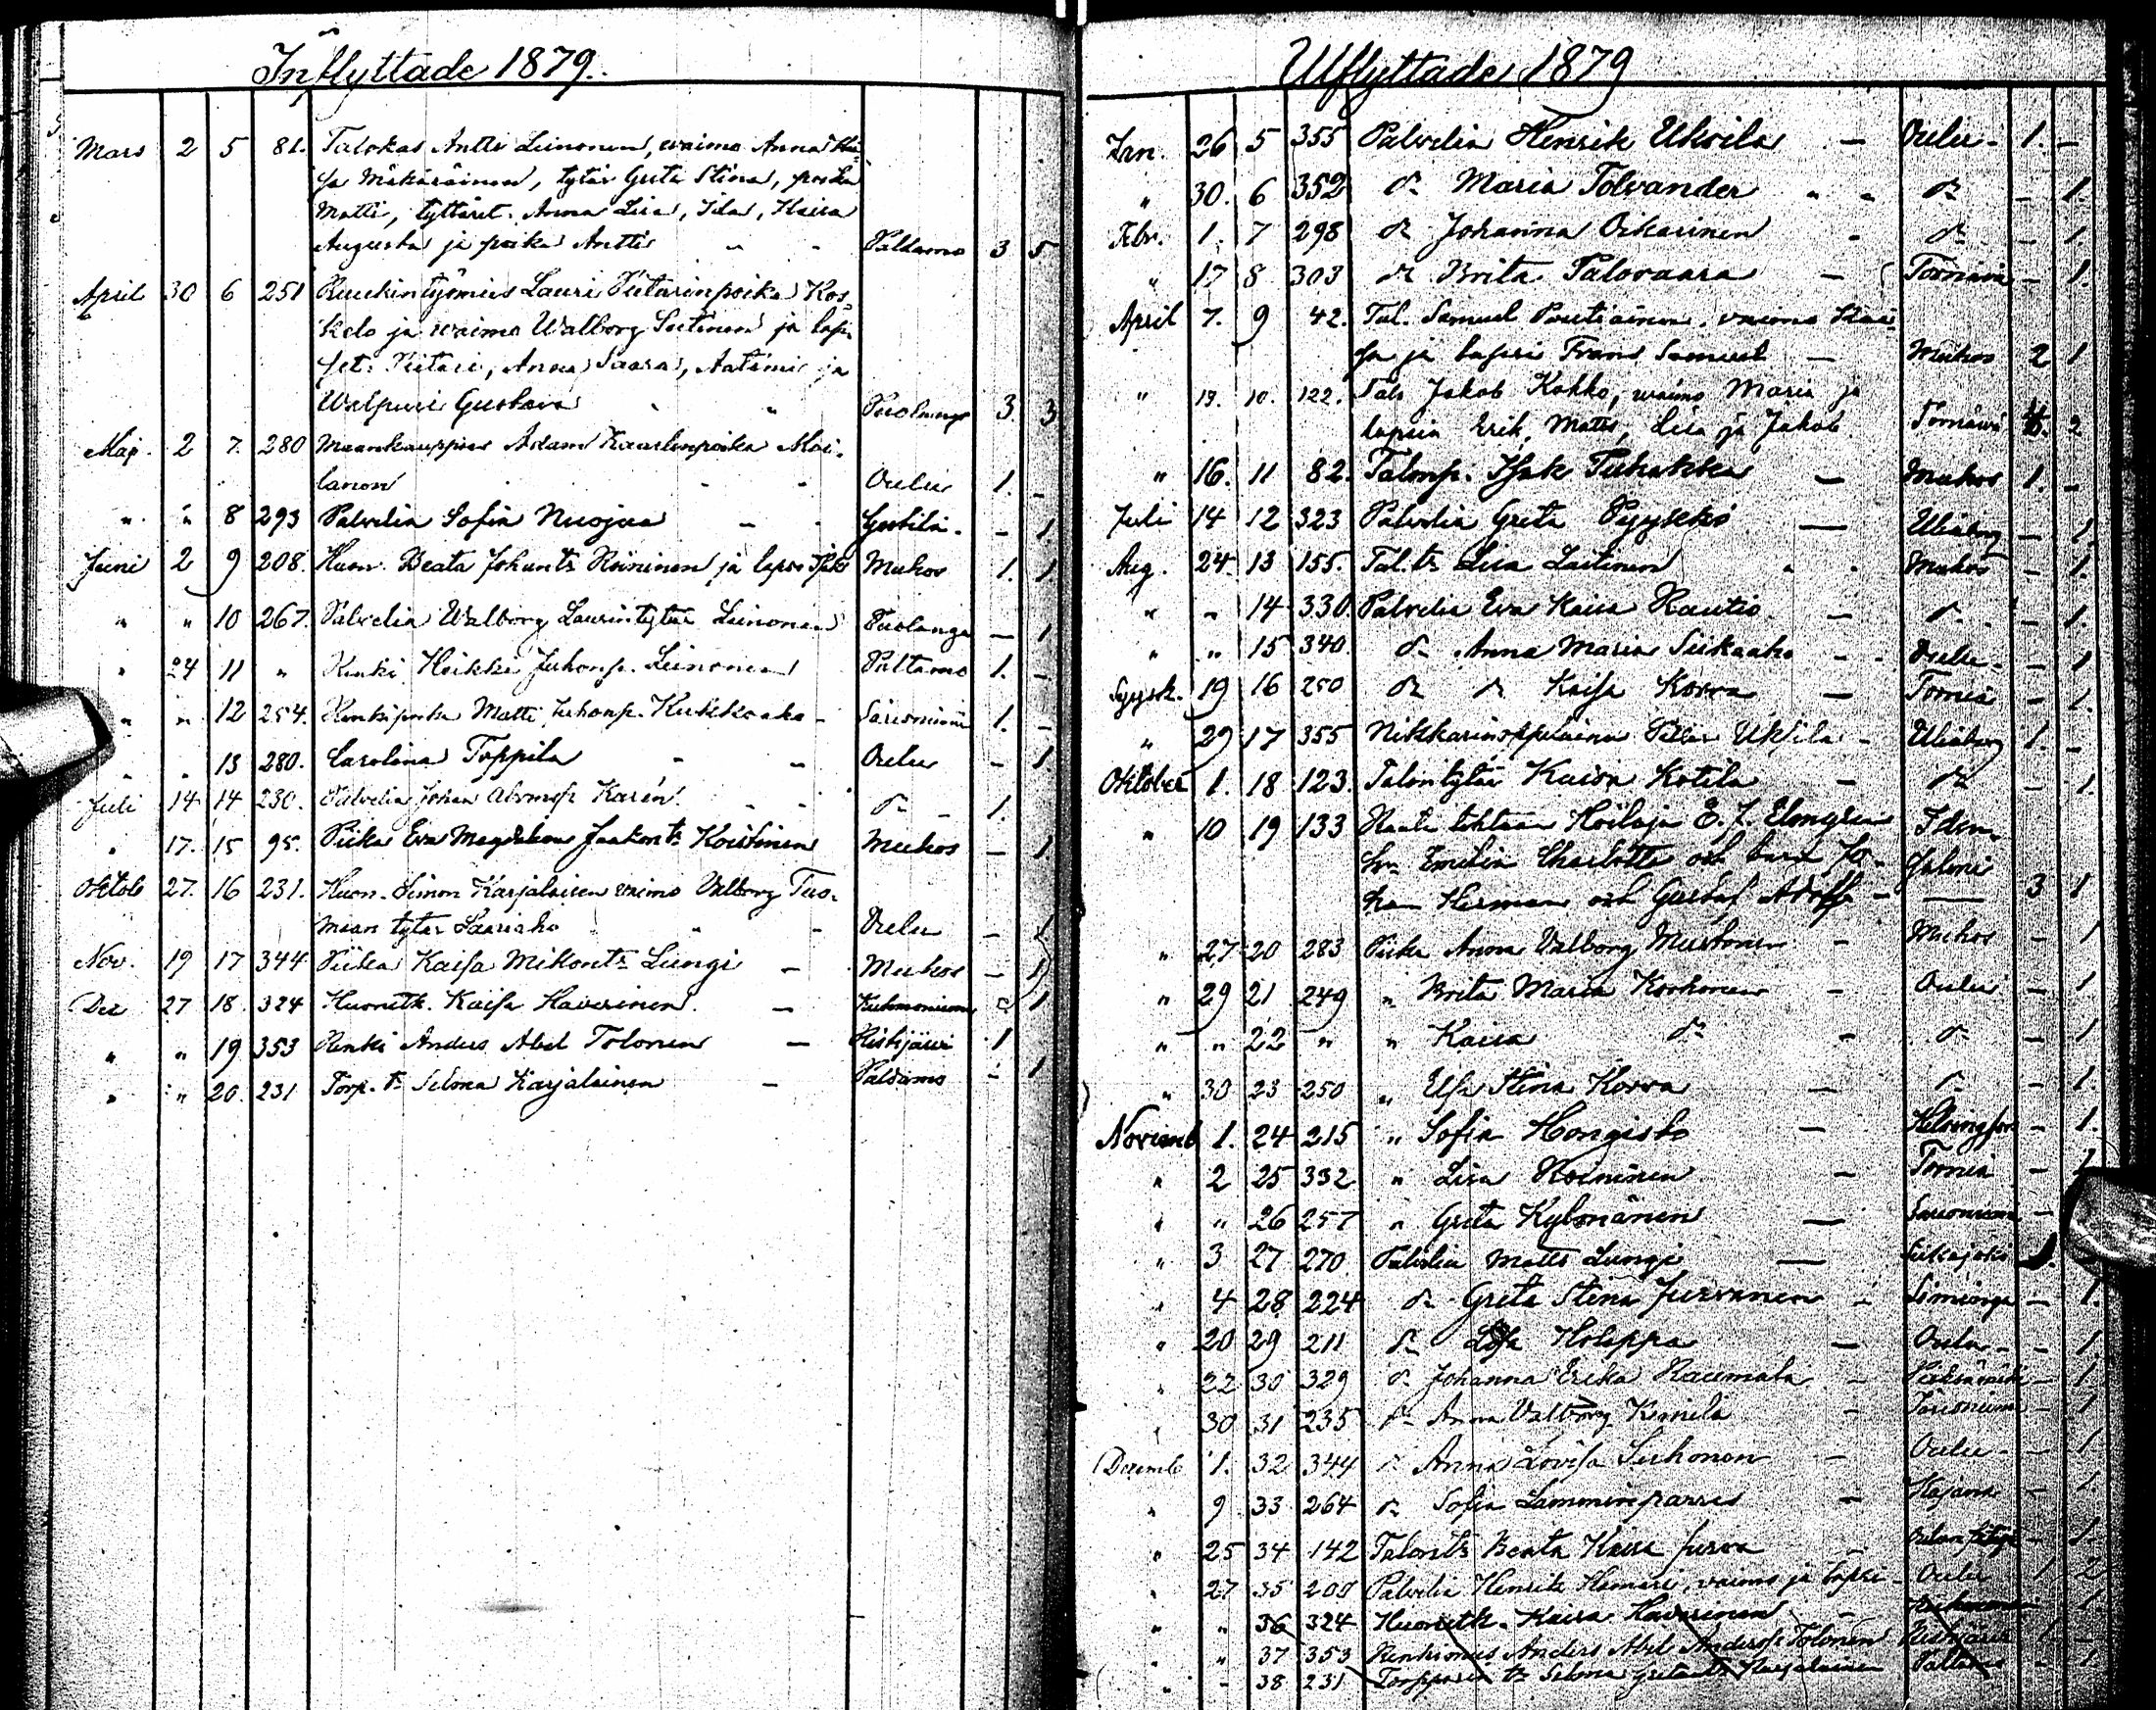 Inflyttade 1879.
Mars 2 5 81. Talokas Antti Leinonen, waimo Anna Kai-
sa Mikäräinen, tytär Greta Stina, poika
Matti, tyttäret Anna Lisa, Ida, Kaisa
Augusta ja poika Antti " - Paldamo 3 5
April 30 6 251 Ruukintyömies Lauri Pietarinpoika Kos-
kelo ja waimo Walborg Seitinen ja lap-
set: Pietari, Anna Saara, Aatami ja
Walpuri Gustava " " Puolango 3. 3
Maj. 2 7. 280 Maankauppias Adam Kaarlenpoika Moi-
lanen - - Oulu 1. -
" " 8 293 Palvelia Sofia Nuojua - - - 1
Juni 2 9 208. Huon. Beata Johants Röininen ja lapsi Isak Muhos 1. 1
" " 10 267. Palvelia Walborg Laurintytär Leinonen Puolango - 1
" 24 11 " Renki Heikki Juhonp. Leinonen Paltamo 1. -
" " 12 254. Renkipoika Matti Juhonp. Kukkoaho - Säresniemi 1. -
" " 13 280. Carolina Toppila - - Oulu - 1.
Juli 14 14 230. Palvelia Johan Abrmsp Karén. - - do - 1.
" 17. 15 95. Piika Eva Magdalena Jaakonts Koistinen Muhos - 1
Oktob 27. 16 231. Huon. Simon Karjalaisen vaimo Valborg Tuo-
maan tytär Laariaho " - Oulu - 1
Nov. 19 17 344 Piika Kaisa Mikonts Lungi - Muhos - 1
Dec 27 18. 324 Huonetk. Kaisa Haverinen. - Kuhmoniemi 1
" " 19 353 Renki Anders Abel Tolonen - Ristijärvi 1
" " 20. 231 Torp. ts Selma Karjalainen - Paldamo - 1
Utflyttade 1879
Jan. 26 5 355 Palvelia Henrik Ukvila - Oulu - 1. -
" 30. 6 352 do Maria Tolvander " " do - 1.
Febr. 1. 7 298 do Johanna Oikarinen - do - 1.
" 17 8 303 do Brita Palovaara - Tornävä - 1.
April 7. 9 42. Tal. Samuel Poutiainen. vaimo Kai-
sa ja lapsi Frans Samuel - Muhos 2 1
" 13. 10. 122. Tal. Jakob Kokko, waimo Maria ja
lapsia Erik, Matts, Lisa ja Jakob. Tornävä 2
" 16. 11 82. Talonp. Isak Tuhakka - Muhos 1. -
Juli 14 12 323 Palvelia Greta Pyykkö - Uleåborg - 1.
Aug. 24. 13 155. Tal. ts Lisa Laitinen " - Muhos - 1.
" " 14 330. Palvelia Eva Kaisa Rautio - do - 1.
" " 15 340. do Anna Maria Siikaaho - - Oulu - - 1
Syysk. 19 16 250 do do Kaisa Korva - Tornio - 1.
" 29 17 355 Nikkarinoppilainen Petter Ukvila - Uleåborg 1. -
Oktober 1. 18 123. Talontytär Kaisa Kotila - do - 1.
" 10 19 133 Rauta tehtaan Höiläja E. J. Elmgren Iden-
Emilia Charlotta och barn Jo- salmi
han Herman och Gustaf Adolf - - 3 1
" 27 20 283 Piika Anna Valborg Mustonen - Muhos - 1
" 29 21 249 " Brita Maria Korhonen - Oulu - 1
" " 22 " " Kaisa do - do - 1
" 30 23 250 " Elsa Stina Korva - do - 1.
Novemb 1. 24 215 " Sofia Hongisto - Helsingfors - 1.
" 2 25 332 " Lisa Roininen - Tornio - 1
" " 26 257 " Greta Kylmänen - Säresniemi -
" 3 27 270. Palvelia Matts Lungi - Siikajoki 1.
" 4 28 224 do Greta Stina Jurvanen - Limingo - 1.
" 20 29 211 do Lisa Holappa - Oulu - - 1
" 22 30 329 do Johanna Erika Raumala - - 1
" 30 31 235 do Anna Valborg Kinila - Säresniemi - 1
Decemb 1. 32 344 do Anna Lovisa Suhonen - Oulu - - 1
" 9 33 264 do Sofia Lamminparras - Kajana - 1
" 25 34 142 Talonts Beata Kaisa Jurva - - 1.
" 27 35 200 Palvelia Henrik Hamari, vaimo ja lapsi - Oulu 1 2
" " 36 324 Huonetk. Kaisa Haverinen - - 1
" " 37 353 Renkimies Anders Abel Andersp Tolonen Ristijärvi 1 -
" - 38 231 Torpparin ts Selma Karjalainen Paltamo - 1